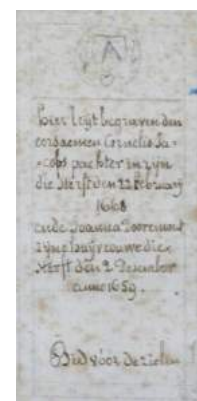 hier leyt begraven den
eersaemen Cornelis Ja-
-cobs pachter in zyn
die sterft den 22 february
1668
ende Joanna
zyne huysvrouwe die
sterft den 2 December
anno 1659.
Bid voor de zielen